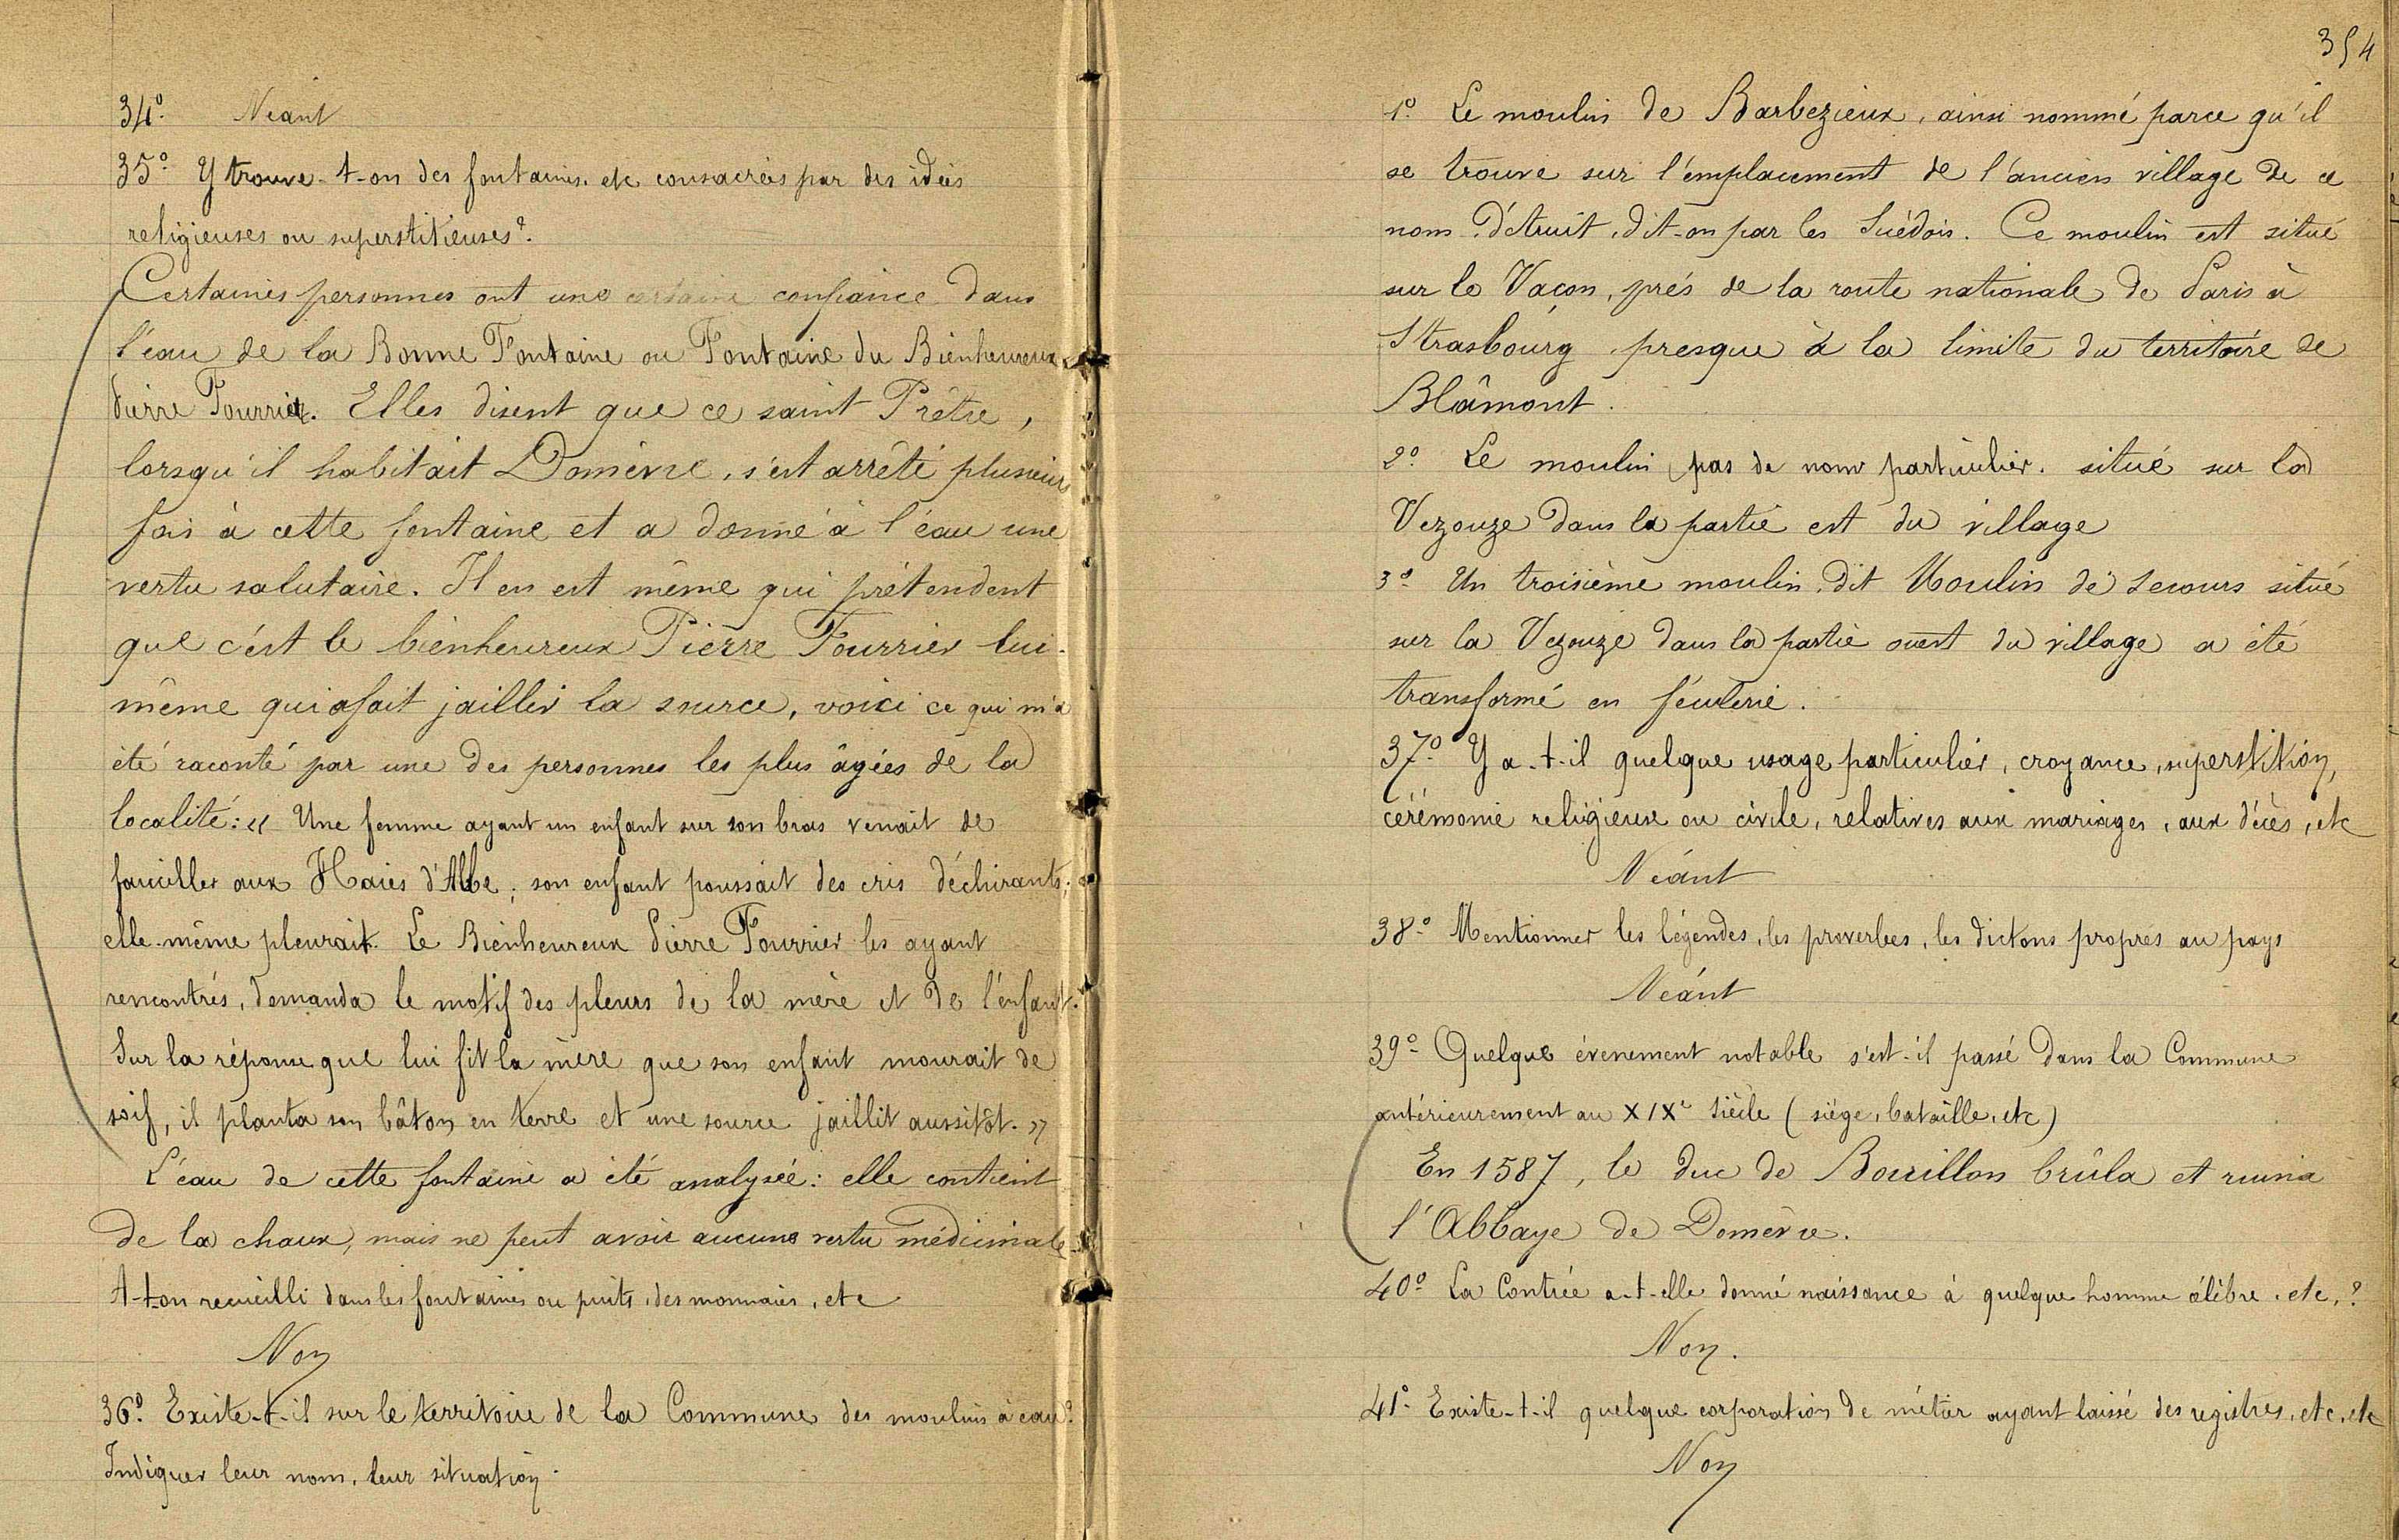 34º. Néant
35º. Y trouve-t-on des fontaines, etc consacrées par des idées
religieuses ou superstitieuses?.
Certaines personnes ont une certaine confiance dans
l'eau de la Bonne Fontaine ou Fontaine du Bienheureux
Pierre Fourrier. Elles disent que ce saint Prêtre,
lorsqu'il habitait Domèvre, s'est arrêté plusieurs
fois à cette fontaine et a donné à l'eau une
vertu salutaire. Il en est même qui prétendent
que c'est le bienheureux Pierre Fourrier lui-
même qui a fait jaillir la source, voici ce qui m'a
été raconté par une des personnes les plus âgées de la
localité: « Une femme ayant un enfant sur son bras venait de
fauciller aux Haies d'Albe; son enfant poussait des cris déchirants;
elle-même pleurait. Le Bienheureux Pierre Fourrier les ayant
rencontrés, demanda le motif des pleurs de la mère et de l'enfant.
Sur la réponse que lui fit la mère que son enfant mourait de
soif, il planta son bâton en terre et une source jaillit aussitôt. »
L'eau de cette fontaine a été analysée: elle contient
de la chaux, mais ne peut avoir aucune vertu médicinale
A-t-on recueilli dans les fontaines ou puits, des monnaies, etc
Non
36º. Existe-t-il sur le territoire de la Commune des moulins à eau?
Indiquer leur nom, leur situation.
354
1º. Le moulin de Barbezieux, ainsi nommé parce qu'il
se trouve sur l'emplacement de l'ancien village de ce
nom détruit, dit-on par les Suédois. Ce moulin est situé
sur le Vacon, près de la route nationale de Paris à
Strasbourg presque à la limite du territoire de
Blâmont.
2º. Le moulin (pas de nom particulier. situé sur la
Vezouze dans la partie est du village
3º. Un troisième moulin, dit Moulin de Secours situé
sur la Vezouze dans la partie ouest du village a été
transformé en féculerie.
37º. Y a-t-il quelque usage particulier, croyance, superstition,
cérémonie religieuse ou civile, relatives aux mariages, aux décès, etc
Néant
38º. Mentionner les légendes, les proverbes, les dictons propres au pays
Néant
39º. Quelque évènement notable s'est-il passé dans la Commune
antérieurement au XIXe Siècle (siège, bataille, etc)
En 1587, le duc de Bouillon brûla et ruina
l'Abbaye de Domèvre.
40º. La Contrée a-t-elle donné naissance à quelque homme célèbre, etc,?
Non.
41º. Existe-t-il quelque corporation de métier ayant laissé des registres, etc, etc
Non